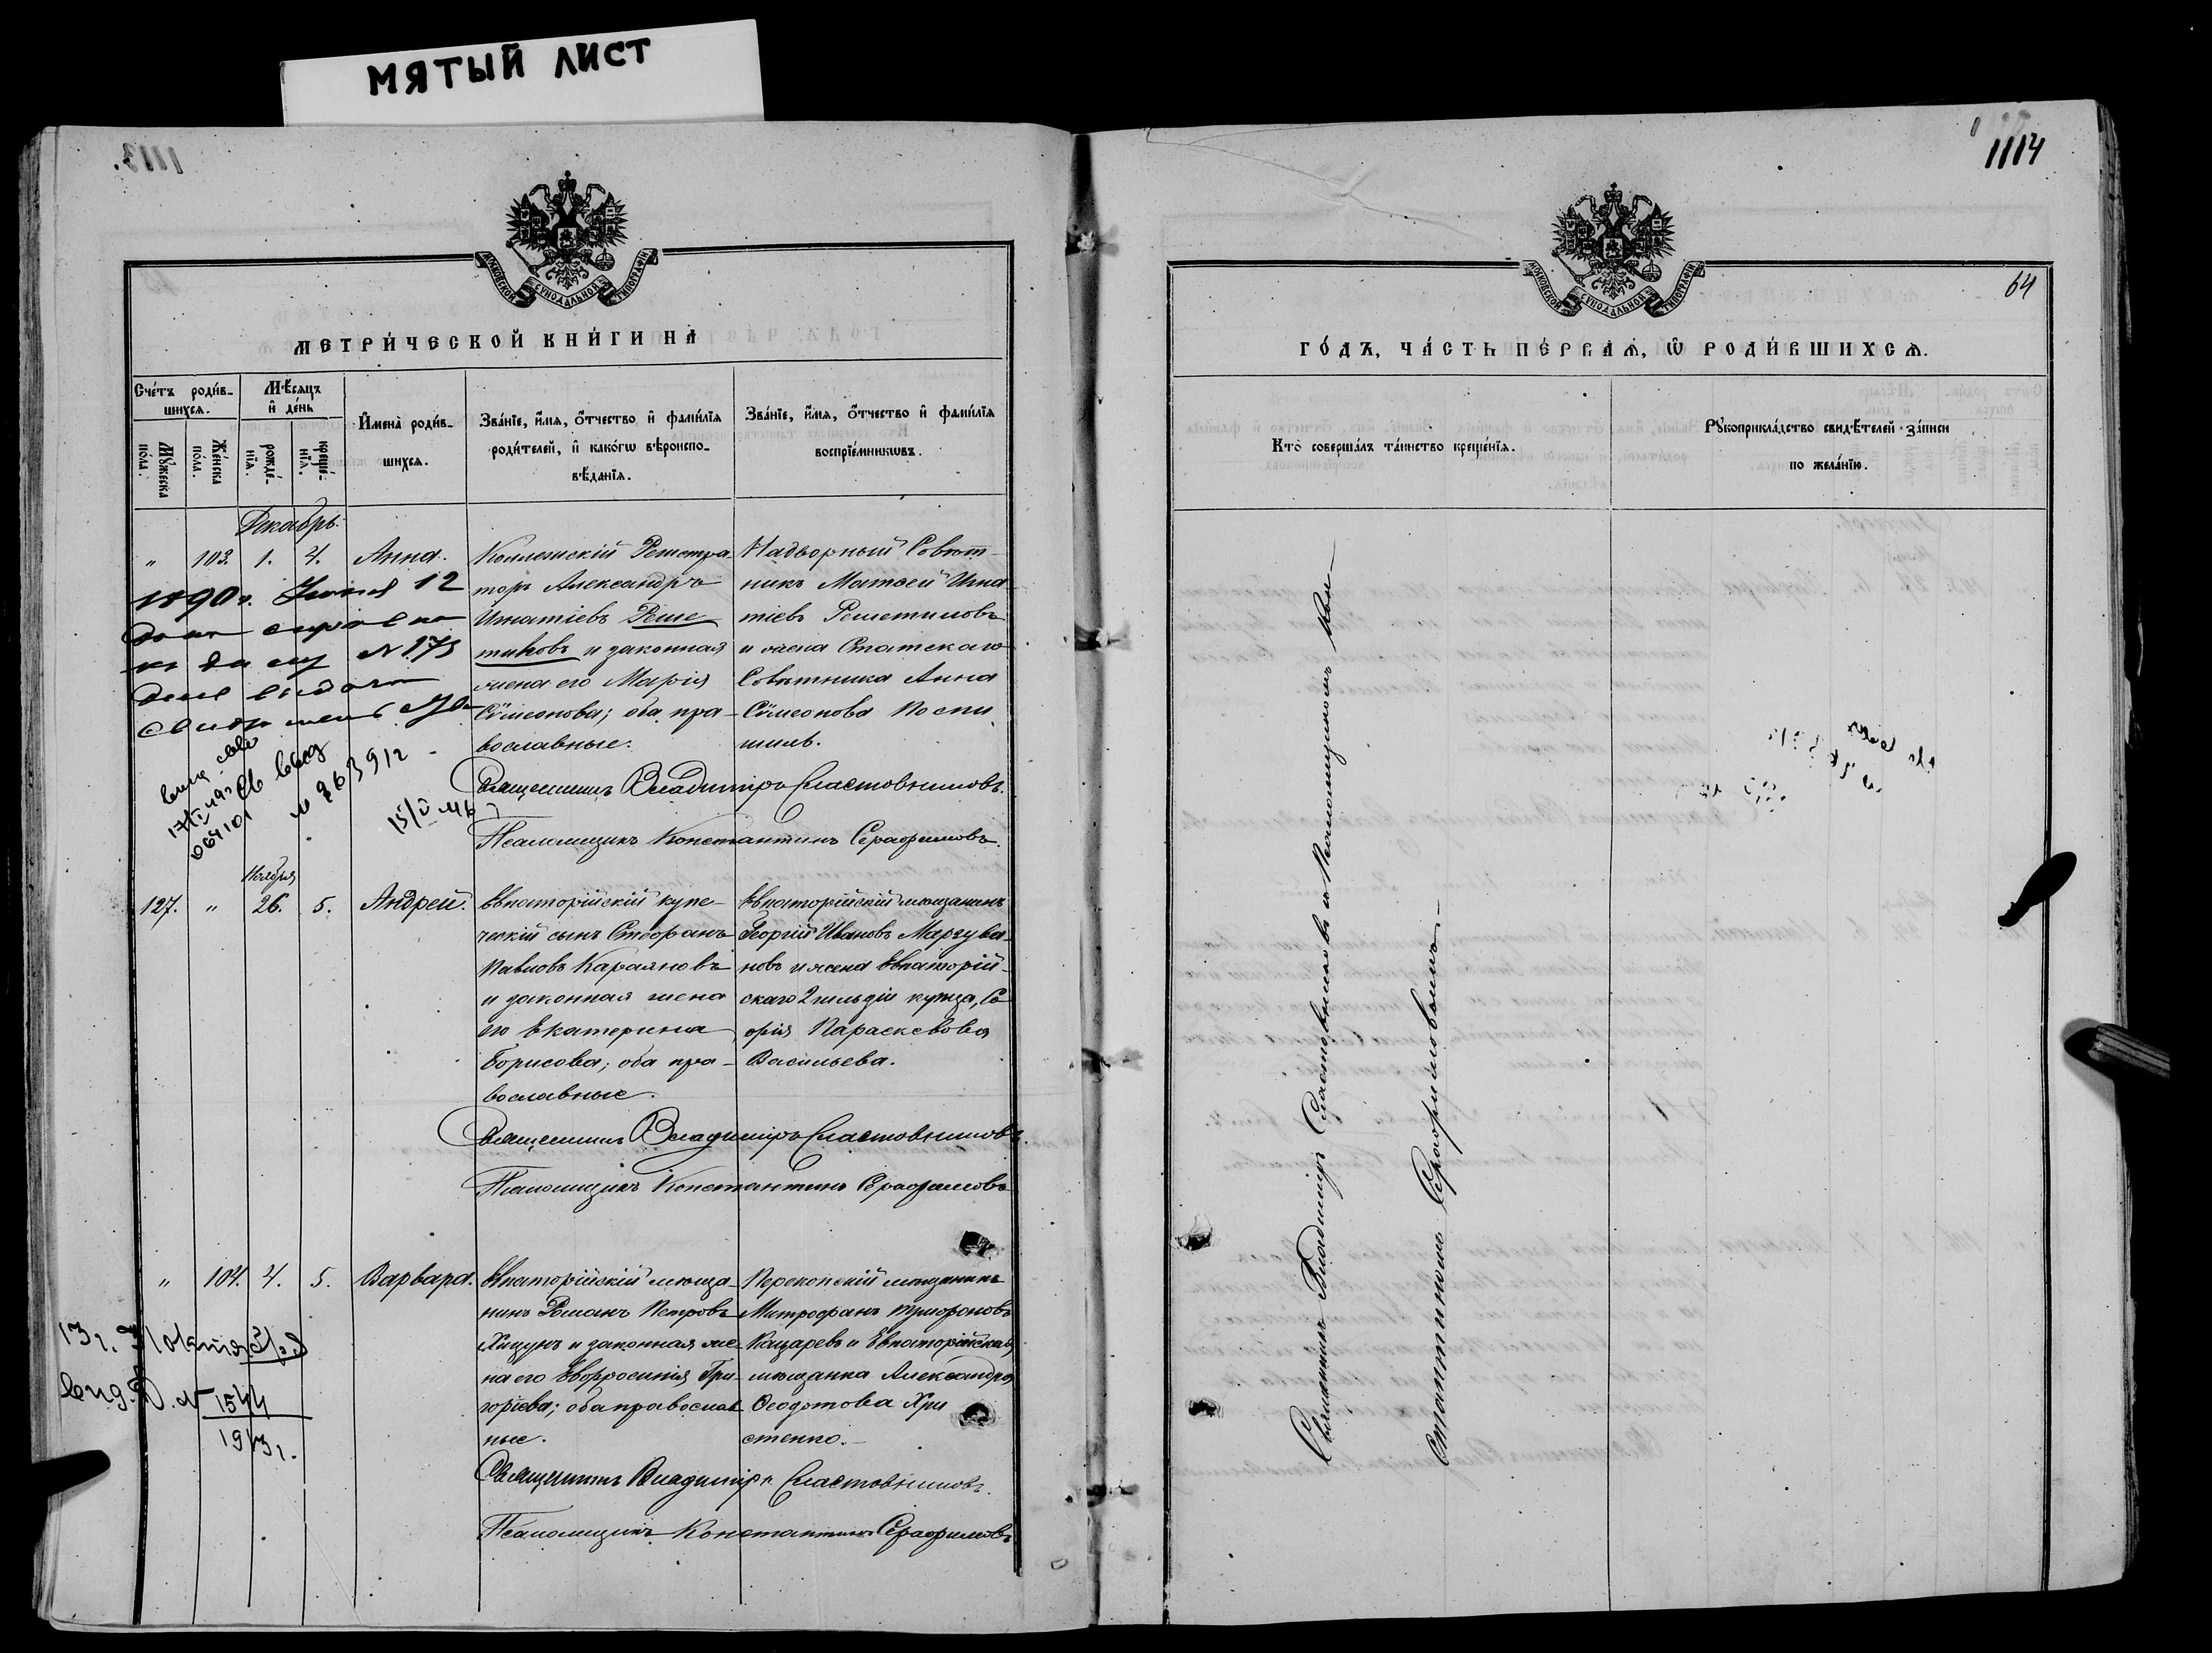 МЯТЫЙ ЛИСТ
1113.
1114
64
МОСКОВСКОЙ СѴНОДАЛЬНОЙ ТИПОГРАФІИ
МЕТРИ́ЧЕСКОЙ КНИ́ГИ НА
Сче́тъ роди́в-
шихсѧ.
Мꙋ́жеска
по́ла.
Же́нска
по́ла.
Мѣ́сѧцъ
и҆ де́нь
рожде́-
нїѧ.
креще́-
нїѧ.
И҆мена̀ роди́в-
шихсѧ.
Зва́нїе, и҆́мѧ, ѻ҆́тчество и҆ фамѝлїѧ
роди́телей, и҆ како́гѡ вѣроиспо-
вѣ́данїѧ.
Зва́нїе, и҆́мѧ, ѻ҆́тчество и҆ фамѝлїѧ
воспрїе́мникѡвъ.
Декабрь.
" 103. 1. 4. Анна.
Коллежскій Регистра-
торъ Александръ
Игнатіевъ Реше
тиковъ и законная
жена его Марія
Сѵмеонова; оба пра-
вославные.
Надворный Совѣт-
никъ Матвей Игна
тіевъ Решетиковъ
и жена Статскаго
Совѣтника Анна
Сѵмеонова
1890 г. Июня 12
№ 175
№ 263912
15/V 46
Священникъ Владиміръ Сластовниковъ.
Псаломщикъ Константинъ Серафимовъ.
Ноября
127. " 26. 5. Андрей.
Евпаторійскій купе-
ческій сынъ Стефанъ
Павловъ Караяновъ
и законная жена
его Екатерина
Борисова; оба пра-
вославные.
Евпаторійскій мѣщанинъ
Георгій Ивановъ Маргува
новъ и жена Евпаторій-
скаго 2 гильдіи купца, Со-
фія Параскевова
Васильева.
Священникъ Владиміръ Сластовниковъ.
Псаломщикъ Константинъ Серафимовъ
" 104. 4. 5. Варвара.
Евпаторійскій мѣща-
нинъ Романъ Петровъ
и законная же-
на его Евфросинія Гри-
горіева; оба православ
ные.
Перекопскій мѣщанинъ
Митрофанъ Трифоновъ
Кацаревъ и Евпаторійская
мѣщанка Александра
Ѳеодотова Хри
стенко.
13 г. 31 октября
выд. № 1544
1913 г.
Священникъ Владиміръ Сластовниковъ.
Псаломщикъ Константинъ Серафимовъ
МОСКОВСКОЙ СѴНОДАЛЬНОЙ ТИПОГРАФІИ
ГО́ДЪ, ЧА́СТЬ ПЕ́РВАѦ, Ѡ҆ РОДИ́ВШИХСѦ.
Кто̀ соверша́лъ та́инство креще́нїѧ.
Рꙋкоприкла́дство свидѣ́телей за́писи
по жела́нїю.
Священникъ Владиміръ Сластовниковъ съ Псаломщикомъ Кон-
стантиномъ Серафимовымъ.